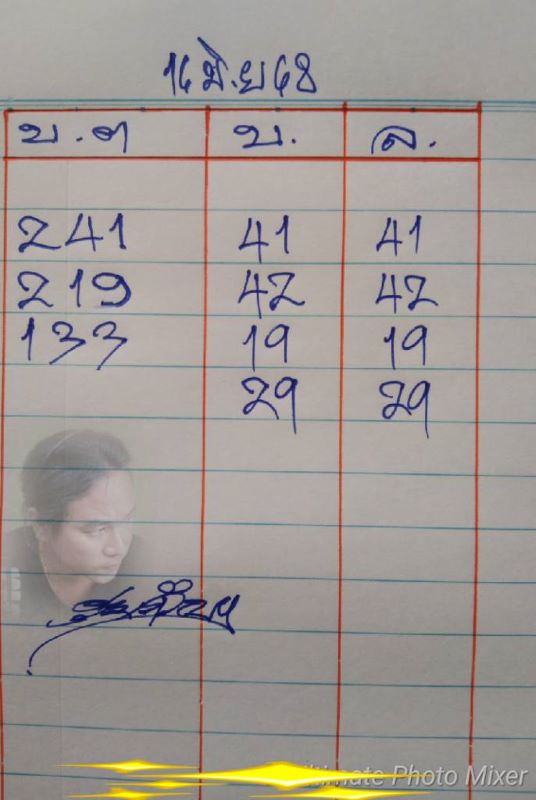 16 มิ.ย 68
บ.ต บ. ล.
241 41 41
219 42 42
133 19 19
29 29
Ultimate Photo Mixer